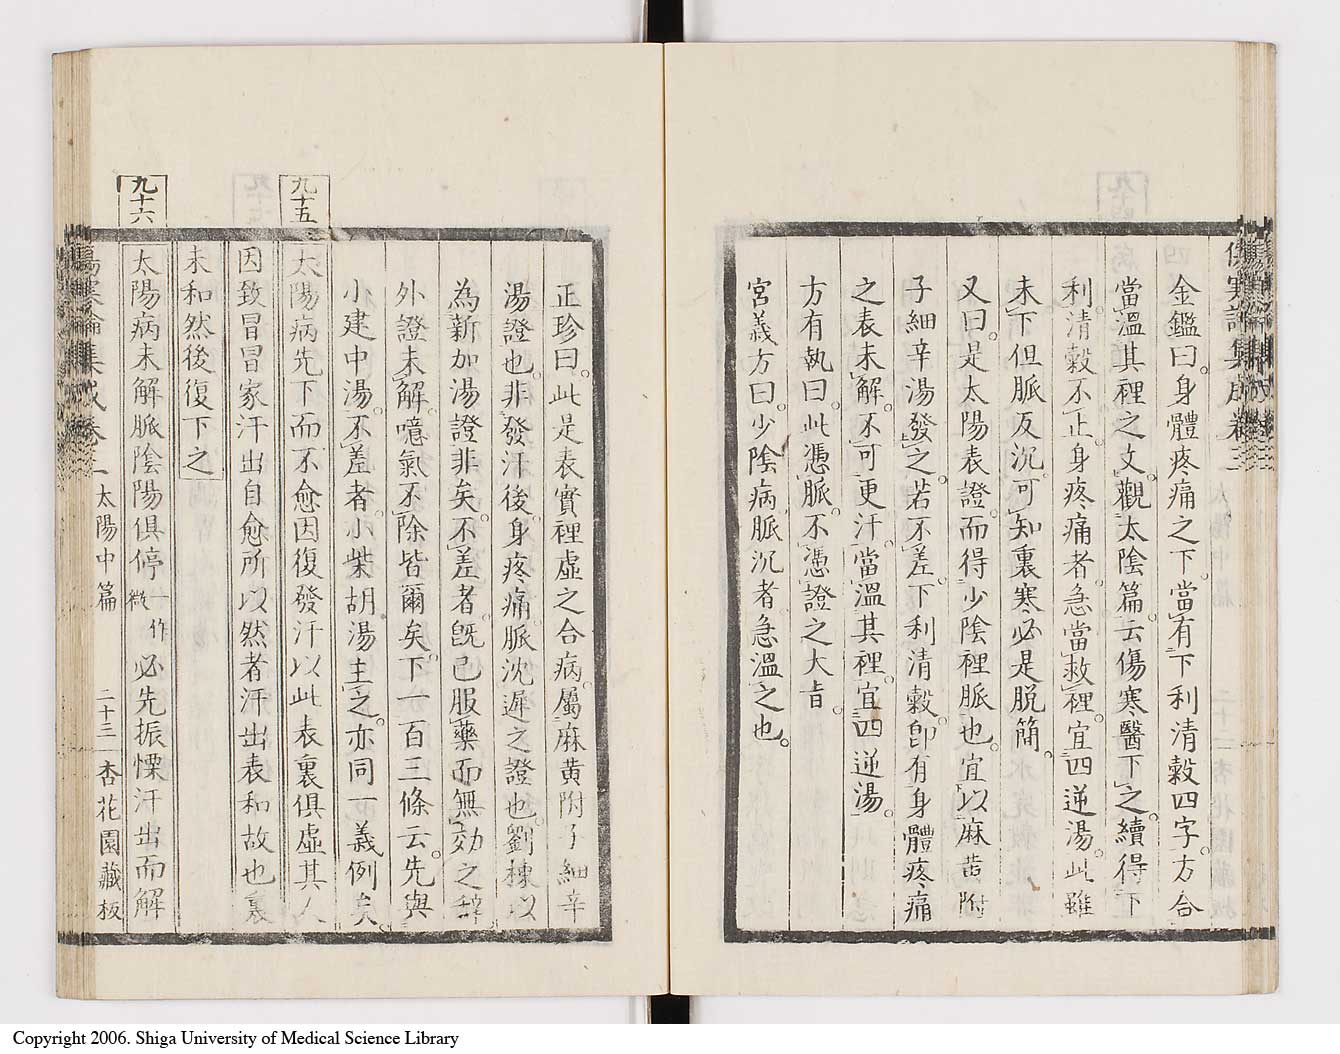 金鑑曰。身體疼痛之下。當有下利清穀四字。方合
當溫其裡之文。觀太陰篇。云傷寒醫下之。續得下
利。清穀不止。身疼痛者。急當救裡。宜四逆湯。此雖
未下。但脈反沉。可知裏寒。必是脫簡。
又曰。是太陽表證。而得少陰裡脈也。宜以麻黃附
子細辛湯發之。若不差。下利清穀。即有身體疼痛
之表未解。不可更汗。當溫其裡。宜四逆湯。
方有執曰。此憑脈。不憑證之大旨。
宮義方曰。少陰病脈沉者急溫之也。
傷寒論集成卷三
正珍曰。此是表實裡虛之合病。屬麻黃附子細辛
湯證也。非發汗後。身疼痛。脈沈遲之證也。劉棟以
為新加湯證非矣。不差者。既已服藥而無効之辭。
外證未解。噫氣不除皆爾矣。下一百三條云。先與
小建中湯。不差者。小柴胡湯主之。亦同一義例矣。
九十五
太陽病先下而不愈因復發汗以此表裏俱虛其人
因致冒冒家汗出自愈所以然者汗出表和故也裏
未和然後復下之
九十六
太陽病未解脈陰陽俱停一作微必先振慄汗出而解
傷寒論集成卷三 太陽中篇 二十三 杏花園藏板
Copyright 2006. Shiga University of Medical Science Library